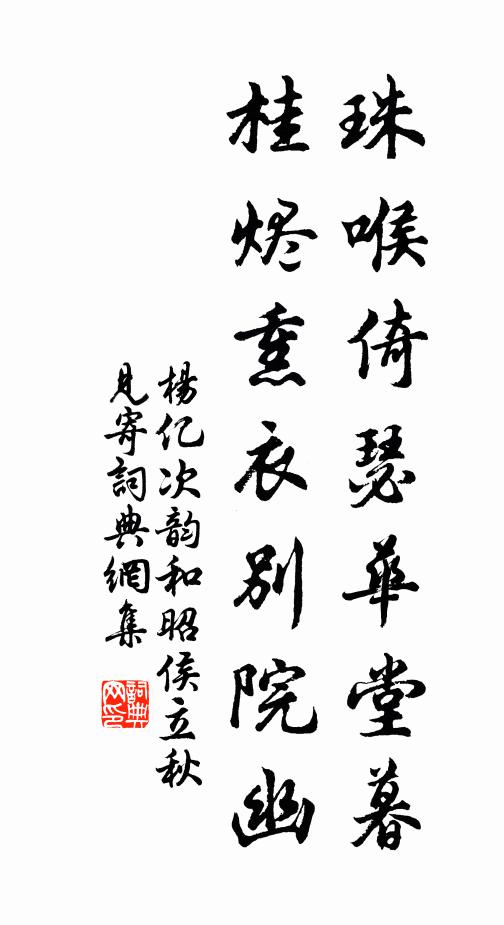 珠喉倚瑟華堂暮
桂烬熏衣別院幽
楊亿次韵和昭侯立秋
見寄詞典網集
詞典
网印